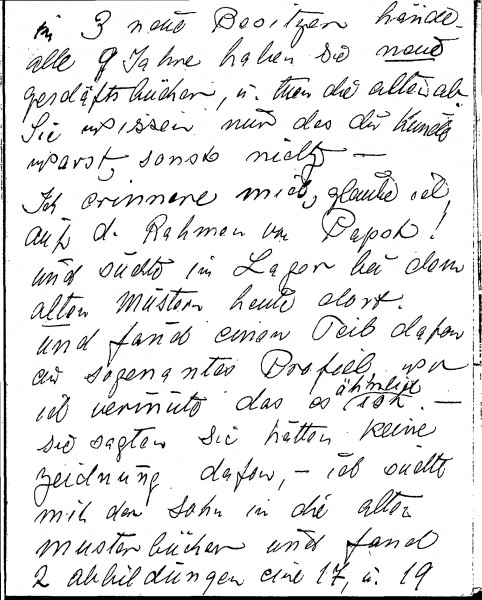 in 3 neue Besitzer hände
alle 9 Jahre haben sie neue
geschäftsbücher, u. tun die alten ab
Sie wissen nur das du Kunde
warst, sonst nicht —
Ich erinnere mich, glaube ich,
auf d. Rahmen von Papst!
und suchte im Lager bei dem
alten Mustern heute dort.
und fand einen Teil dafon
die sogenantes Profeel wo
ich vermute das es ähnlich ist. —
sie sagten sie hätten keine
zeidnung dafon, — ich suchte
mit dem Sohn in die alten
musterbücher und fand
2 abbildungen eine 17, u. 19